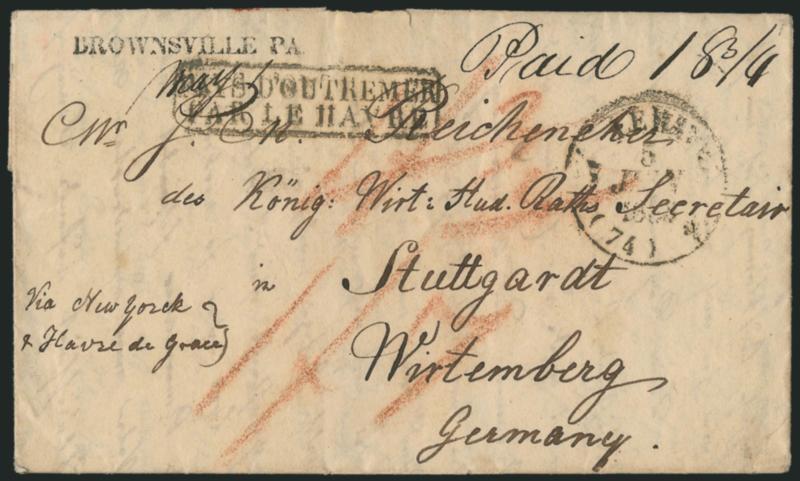 BROWNSVILLE PA
May
Paid 18 3/4
PAYS D'OUTREMER
PAR LE HAVRE
Mr J.
des König: Wirt: Stud. Raths Secretair
in Stuttgardt
Wirtemberg
Germany.
Via New Yorck
& Havre de Grace
5
(74)